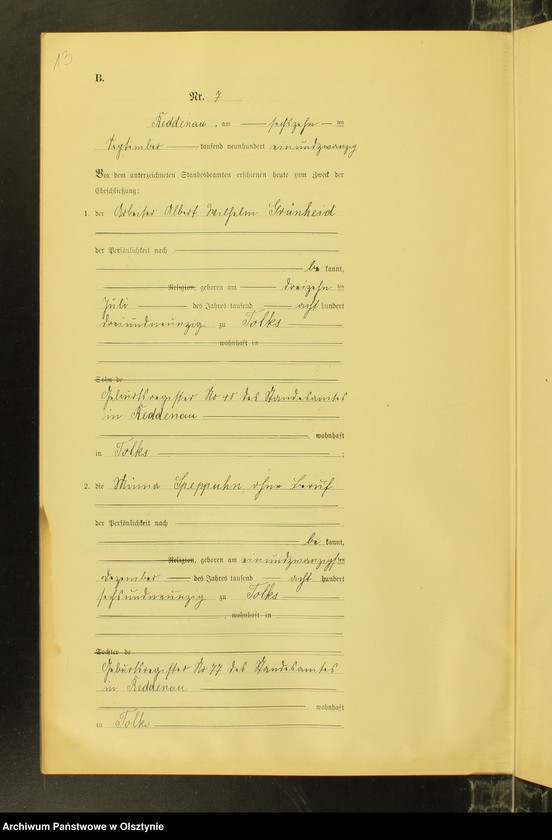 13
B.
Nr. 7
Reddenau, am sechszehn ten
September tausend neunhundert einundzwanzig
Vor dem unterzeichneten Standesbeamten erschienen heute zum Zweck der
Eheschließung:
1. der Arbeiter Albert Wilhelm Grünheid
der Persönlichkeit nach
be kannt,
Religion, geboren am dreizehn ten
Juli des Jahres tausend acht hundert
dreiundneunzig zu Tolks
wohnhaft in
Sohn de
Geburtsregister Nr des Standesamtes
in Reddenau
wohnhaft
in Tolks ;
2. die Minna Speppuhn, ohne Beruf
der Persönlichkeit nach
be kannt,
Religion, geboren am einundzwanzigsten
Dezember des Jahres tausend acht hundert
sechsundneunzig zu Tolks
, wohnhaft in
Tochter de
Geburtsregister Nr 77 des Standesamtes
in Reddenau
wohnhaft
in Tolks
Archiwum Państwowe w Olsztynie